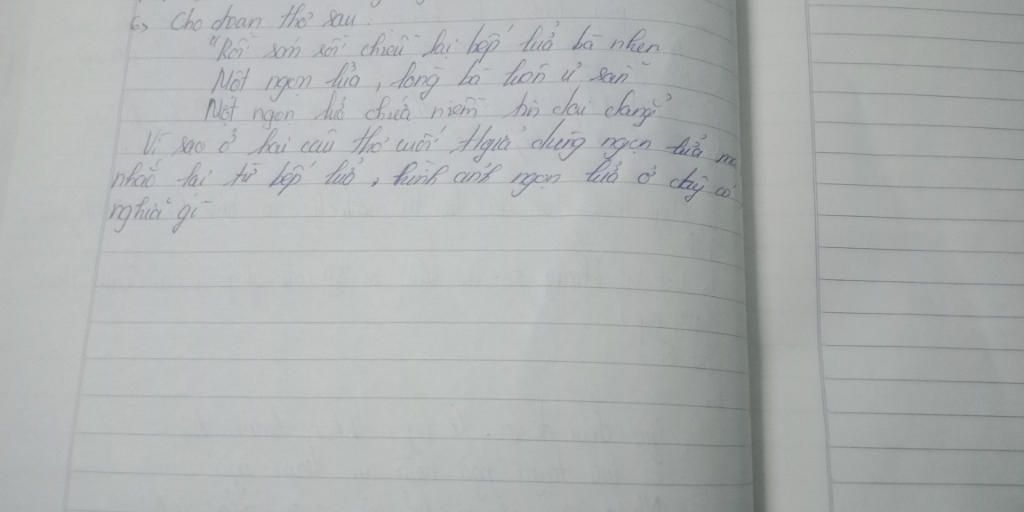 6, Cho đoạn thơ sau:
"Rồi sớm rồi chiều lại bếp lửa bà nhen
Một ngọn lửa, lòng bà luôn ủ sẵn
Một ngọn lửa chứa niềm tin dai dẳng"
Vì sao ở hai câu thơ cuối t/giả dùng ngọn lửa mà
nhắc lại từ bếp lửa, hình ảnh ngọn lửa ở đây có
nghĩa gì